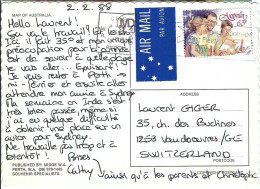 2.2.88
MAP OF AUSTRALIA.
Hello Laurent!
Ça va le travail? Ici
il fait 35° et mon unique
préoccupation pour la journée
est de savoir à quelle plage
je vais aller... Epuisant!
Je vais rester à Perth
février et ensuite aller
entendre mon année à Sydney
Ma semaine en Inde s'est
très bien passée, même si
j'ai eu quelque difficulté
à obtenir une place sur un
avion pour Sydney.
Ne travaille pas trop et à
bientôt! Bises
Cathy
AIR MAIL
PAR AVION
Australia
ADDRESS
Laurent GIGER
35, ch. des Buclines
1258 Vandoeuvres/GE
SWITZERLAND
POSTCODE
PUBLISHED BY: MIDGE W.A.
PERTH, W.A.
SOUVENIR SPECIALISTS
ainsi qu'à tes parents et Christophe